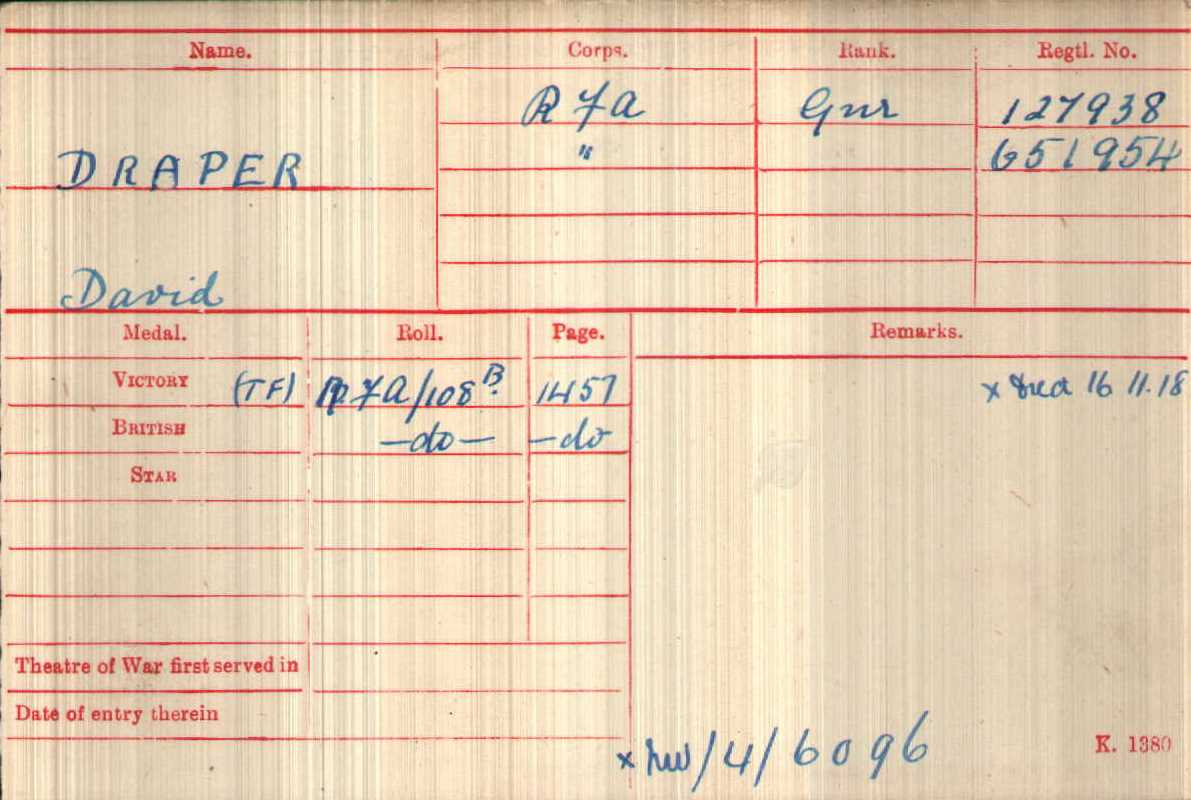 Name. Corps. Rank. Regtl. No.
R F A Gnr 127938
DRAPER " 651954
David
Medal. Roll. Page. Remarks.
VICTORY (TF) RFA/108B 1457 x Died 16 11.18
BRITISH —do— —do
STAR
Theatre of War first served in
Date of entry therein
x NW/4/6096 K. 1380